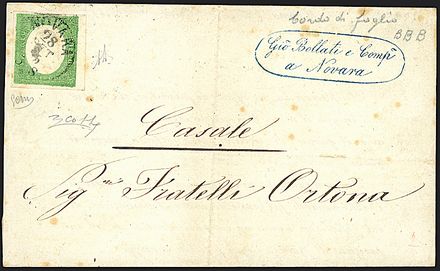 NOVARA
28
Bordo di foglio
BBB
Gio Bellati e Comp
a Novara
Casale
Sig. Fratelli Ortona